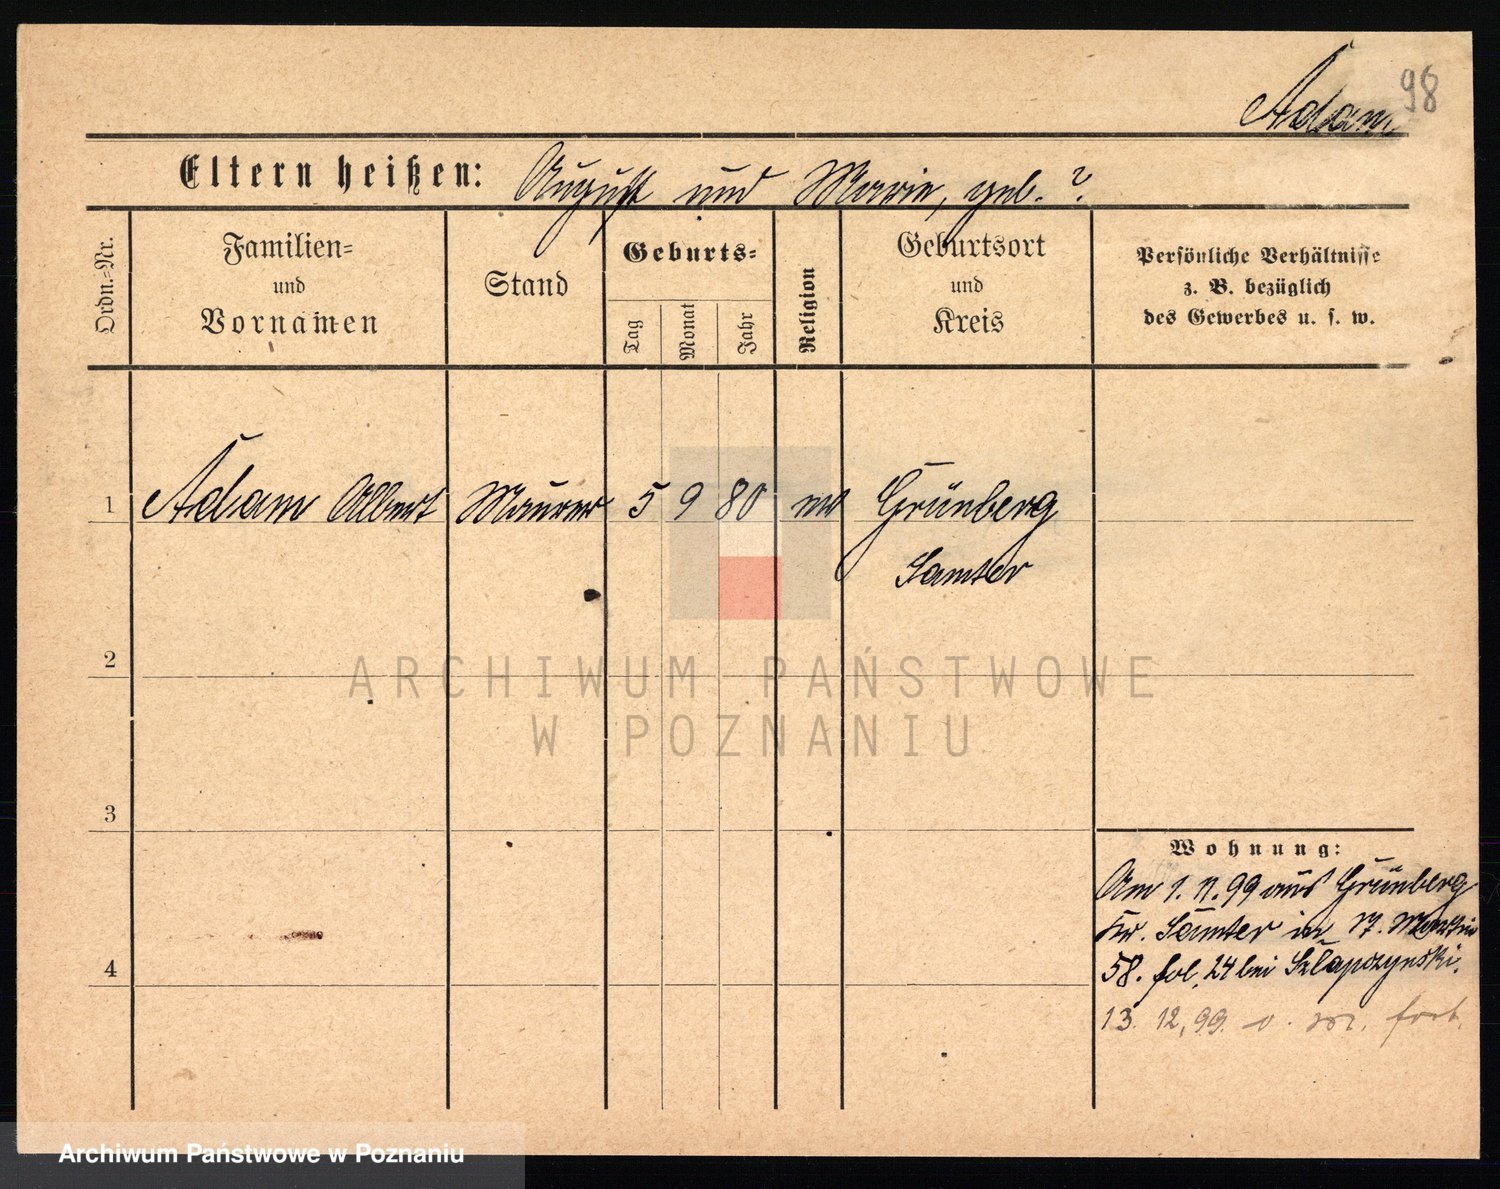 98
Adam
Eltern heißen: August und Marie, geb. ?
Ordn.-Nr.
Familien-
und
Vornamen
Stand
Geburts-
Tag
Monat
Jahr
Religion
Geburtsort
und
Kreis
Persönliche Verhältnisse
z. B. bezüglich
des Gewerbes u. s. w.
1 Adam Albert Maurer 5 9 80 Grünberg
Samter
2
3
4
Wohnung:
Am 1. 11. 99 aus Grünberg
Kr. Samter in St. Martin
58. fol. 24 bei Szlapczynski.
13. 12. 99. o. M. fort.
ARCHIWUM PAŃSTWOWE
W POZNANIU
Archiwum Państwowe w Poznaniu